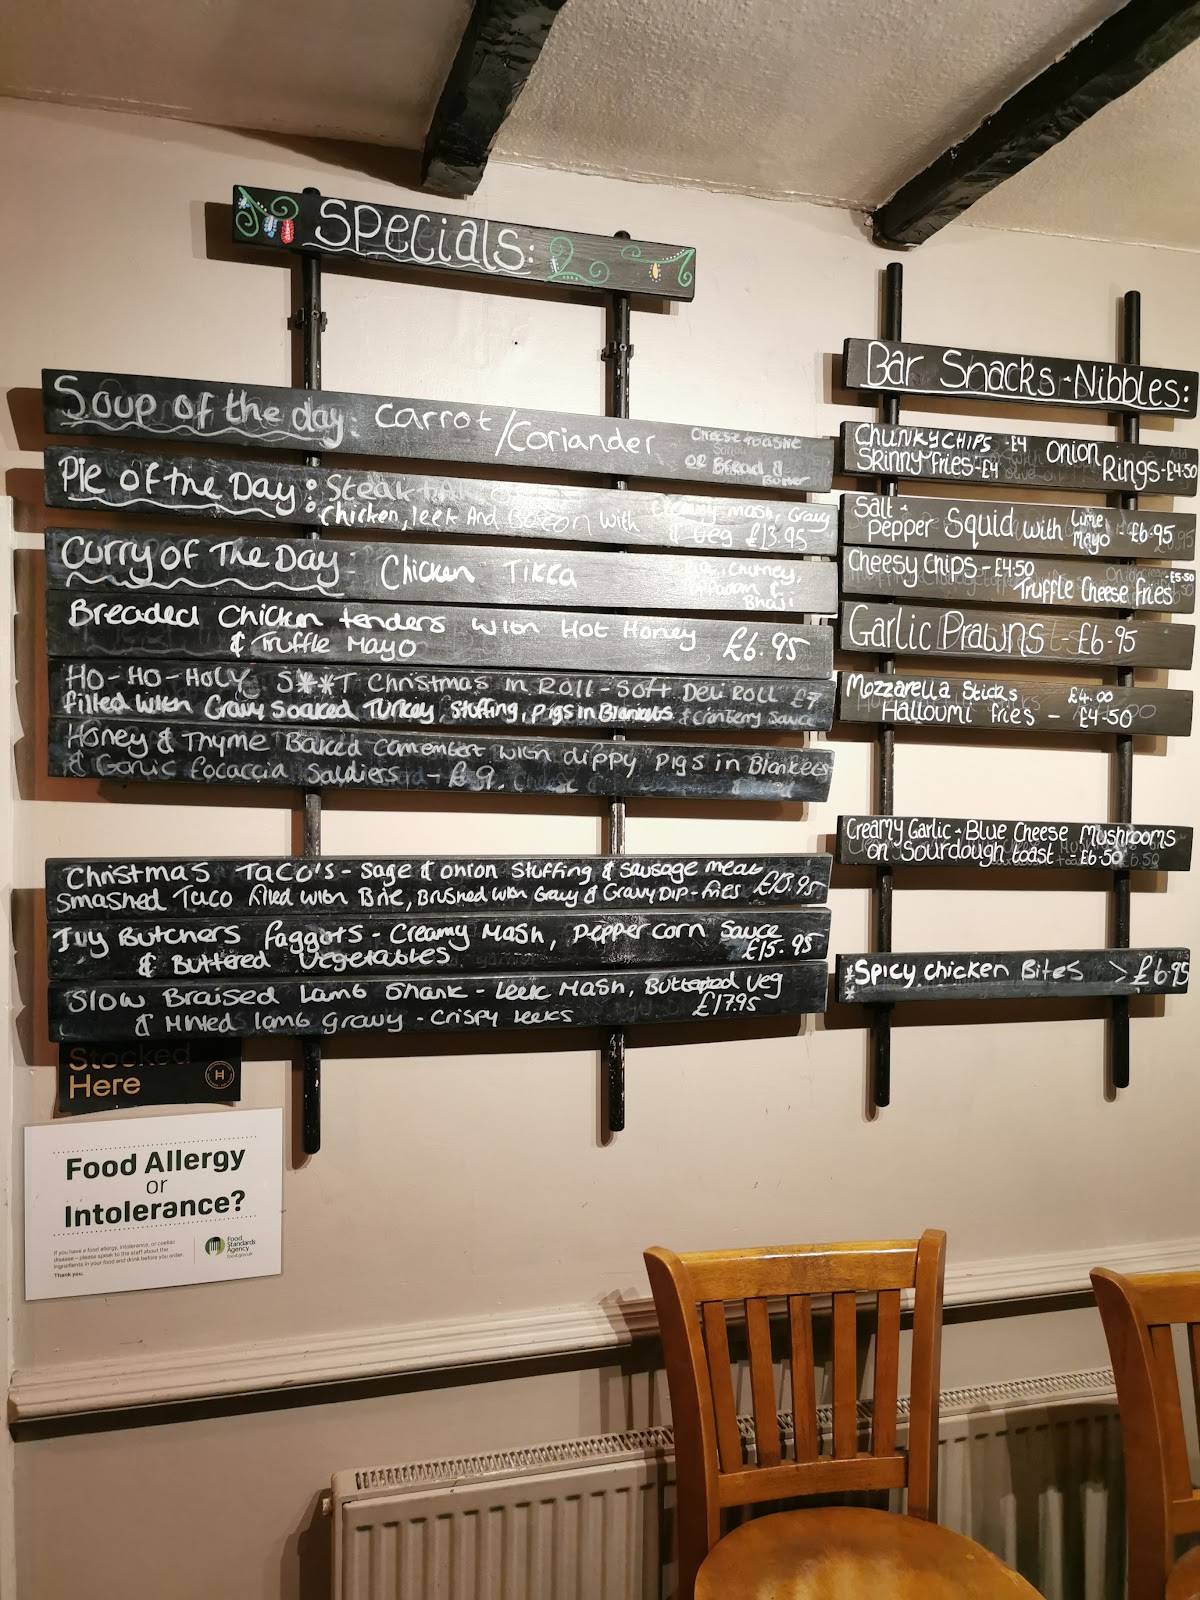 Specials:
Soup of the day: Carrot/Coriander
Cheese toastie
OR Bread &
Butter
Pie of the Day: Steak
Chicken, leek And Bacon with Creamy mash, Gravy
& Veg £13.95
Curry of The Day: Chicken Tikka
Chutney,
&
Bhaji
Breaded Chicken tenders with Hot Honey
& Truffle Mayo £6.95
HO-HO-HOLY S**T Christmas in Roll - Soft Deli Roll £7
filled with Gravy Soaked Turkey, Stuffing, pigs in Blankets & Cranberry Sauce
Honey & Thyme Baked Camembert with dippy pigs in Blankets
& Garlic focaccia Soldiers - £9.
Christmas Taco's - Sage & onion Stuffing & Sausage meat
Smashed Taco filled with Brie, Brushed with Gravy & Gravy Dip - fries £13.95
Ivy Butchers faggots - Creamy Mash, peppercorn Sauce
& Buttered Vegetables £15.95
Slow Braised Lamb Shank - Leek Mash, Buttered veg
& Minted lamb gravy - Crispy leeks £17.95
Stocked
Here
Food Allergy
or
Intolerance?
If you have a food allergy, intolerance, or coeliac
disease – please speak to the staff about the
ingredients in your food and drink before you order.
Thank you.
Food
Standards
Agency
food.gov.uk
Bar Snacks - Nibbles:
Chunky Chips - £4
Skinny fries - £4
Onion
Rings - £4.50
Salt +
pepper Squid with Lime Mayo - £6.95
Cheesy Chips - £4.50
Truffle Cheese fries - £5.50
Garlic Prawns - £6-95
Mozzarella Sticks £4.00
Halloumi fries - £4-50
Creamy Garlic - Blue Cheese Mushrooms
on Sourdough toast £6.50
*Spicy chicken Bites > £6.95